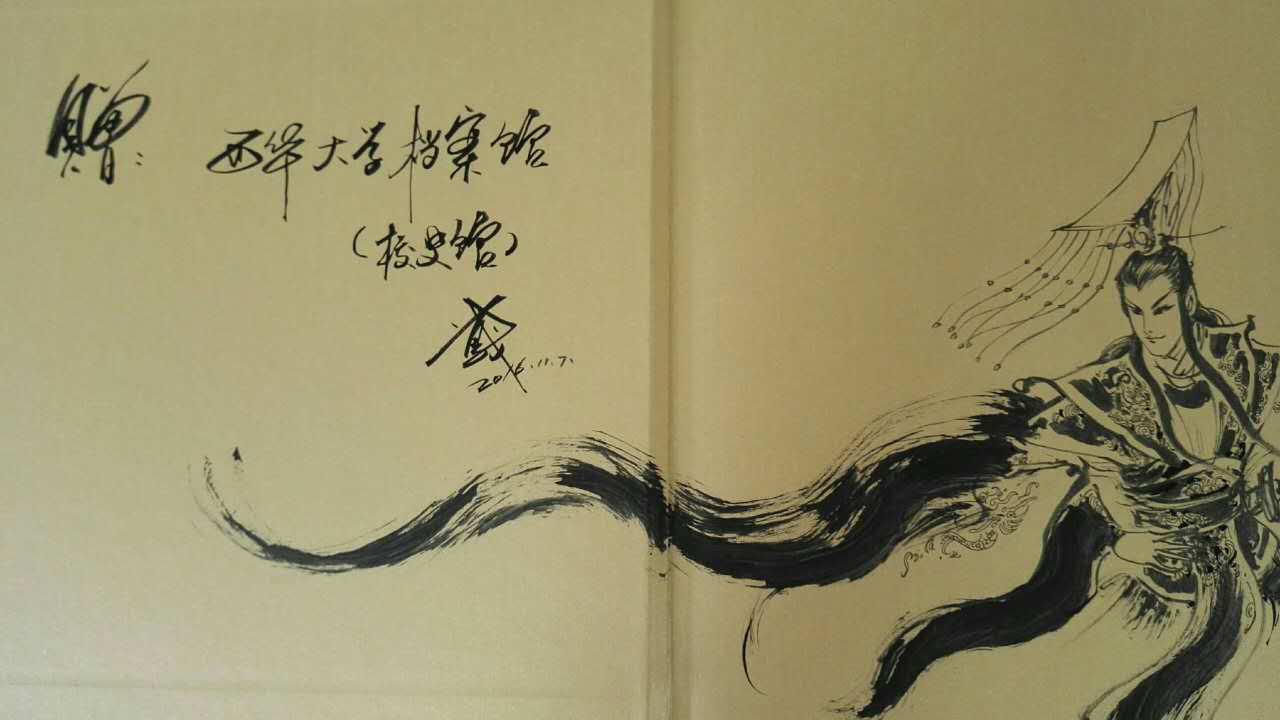 赠：
西华大学档案馆
（校史馆）
2016.11.7.